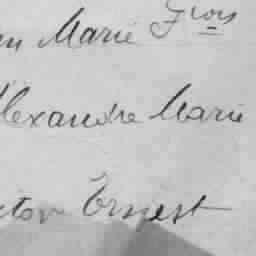 en Marie Frois
Alexandre Marie
ctor Ernest